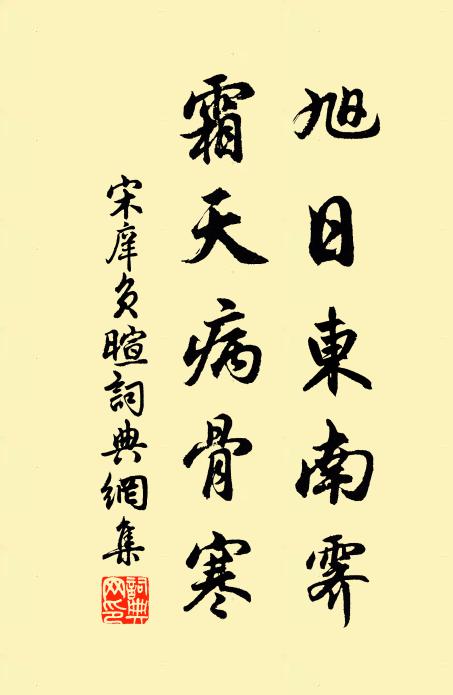 旭日東南霽
霜天病骨寒
宋庠負暄詞典網集
詞典
网印